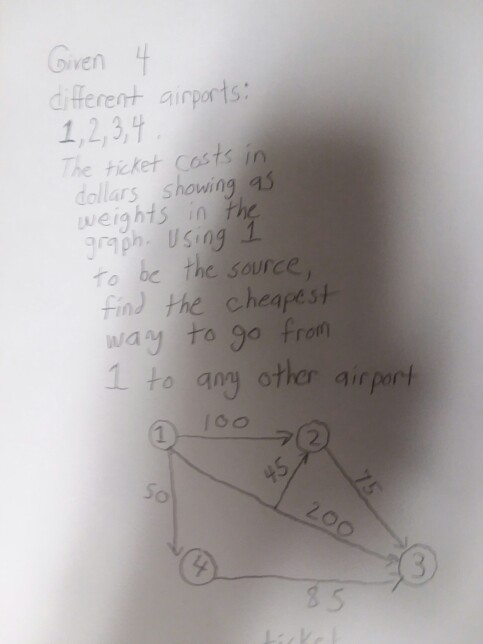 Given 4
different airports:
1,2,3,4.
The ticket costs in
dollars showing as
weights in the
graph. Using 1
to be the source,
find the cheapest
way to go from
1 to any other airport
100
1
2
45
75
50
200
4
3
85
ticket